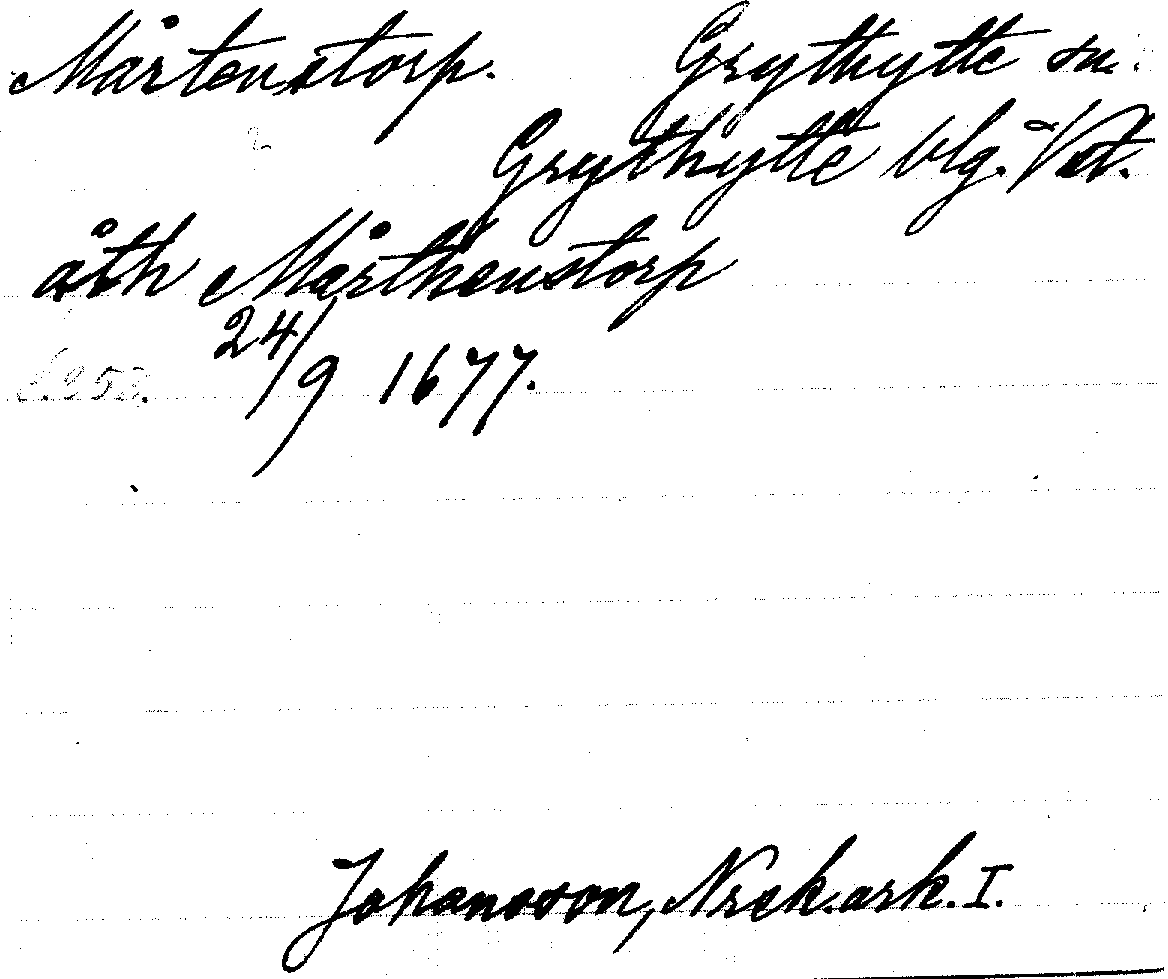 Mårtenstorp. Grythytte sn.
Grythytte blg. Vstm.
åth Mårthenstorp
24/9 1677.
Johansson, Nrck.ark. I.